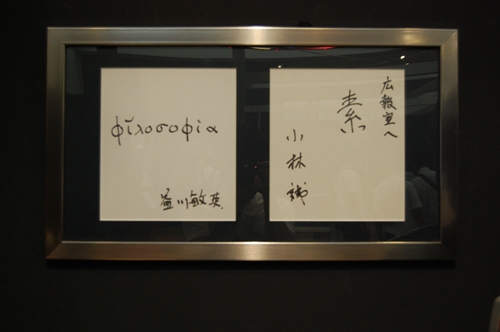 φῐλοσοφία
益川敏英
広報室へ
素
小林誠